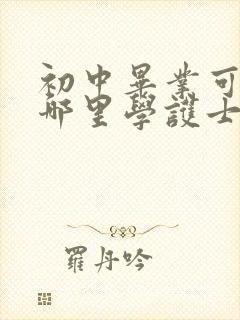 初中畢業可
哪里學護士
羅丹吟